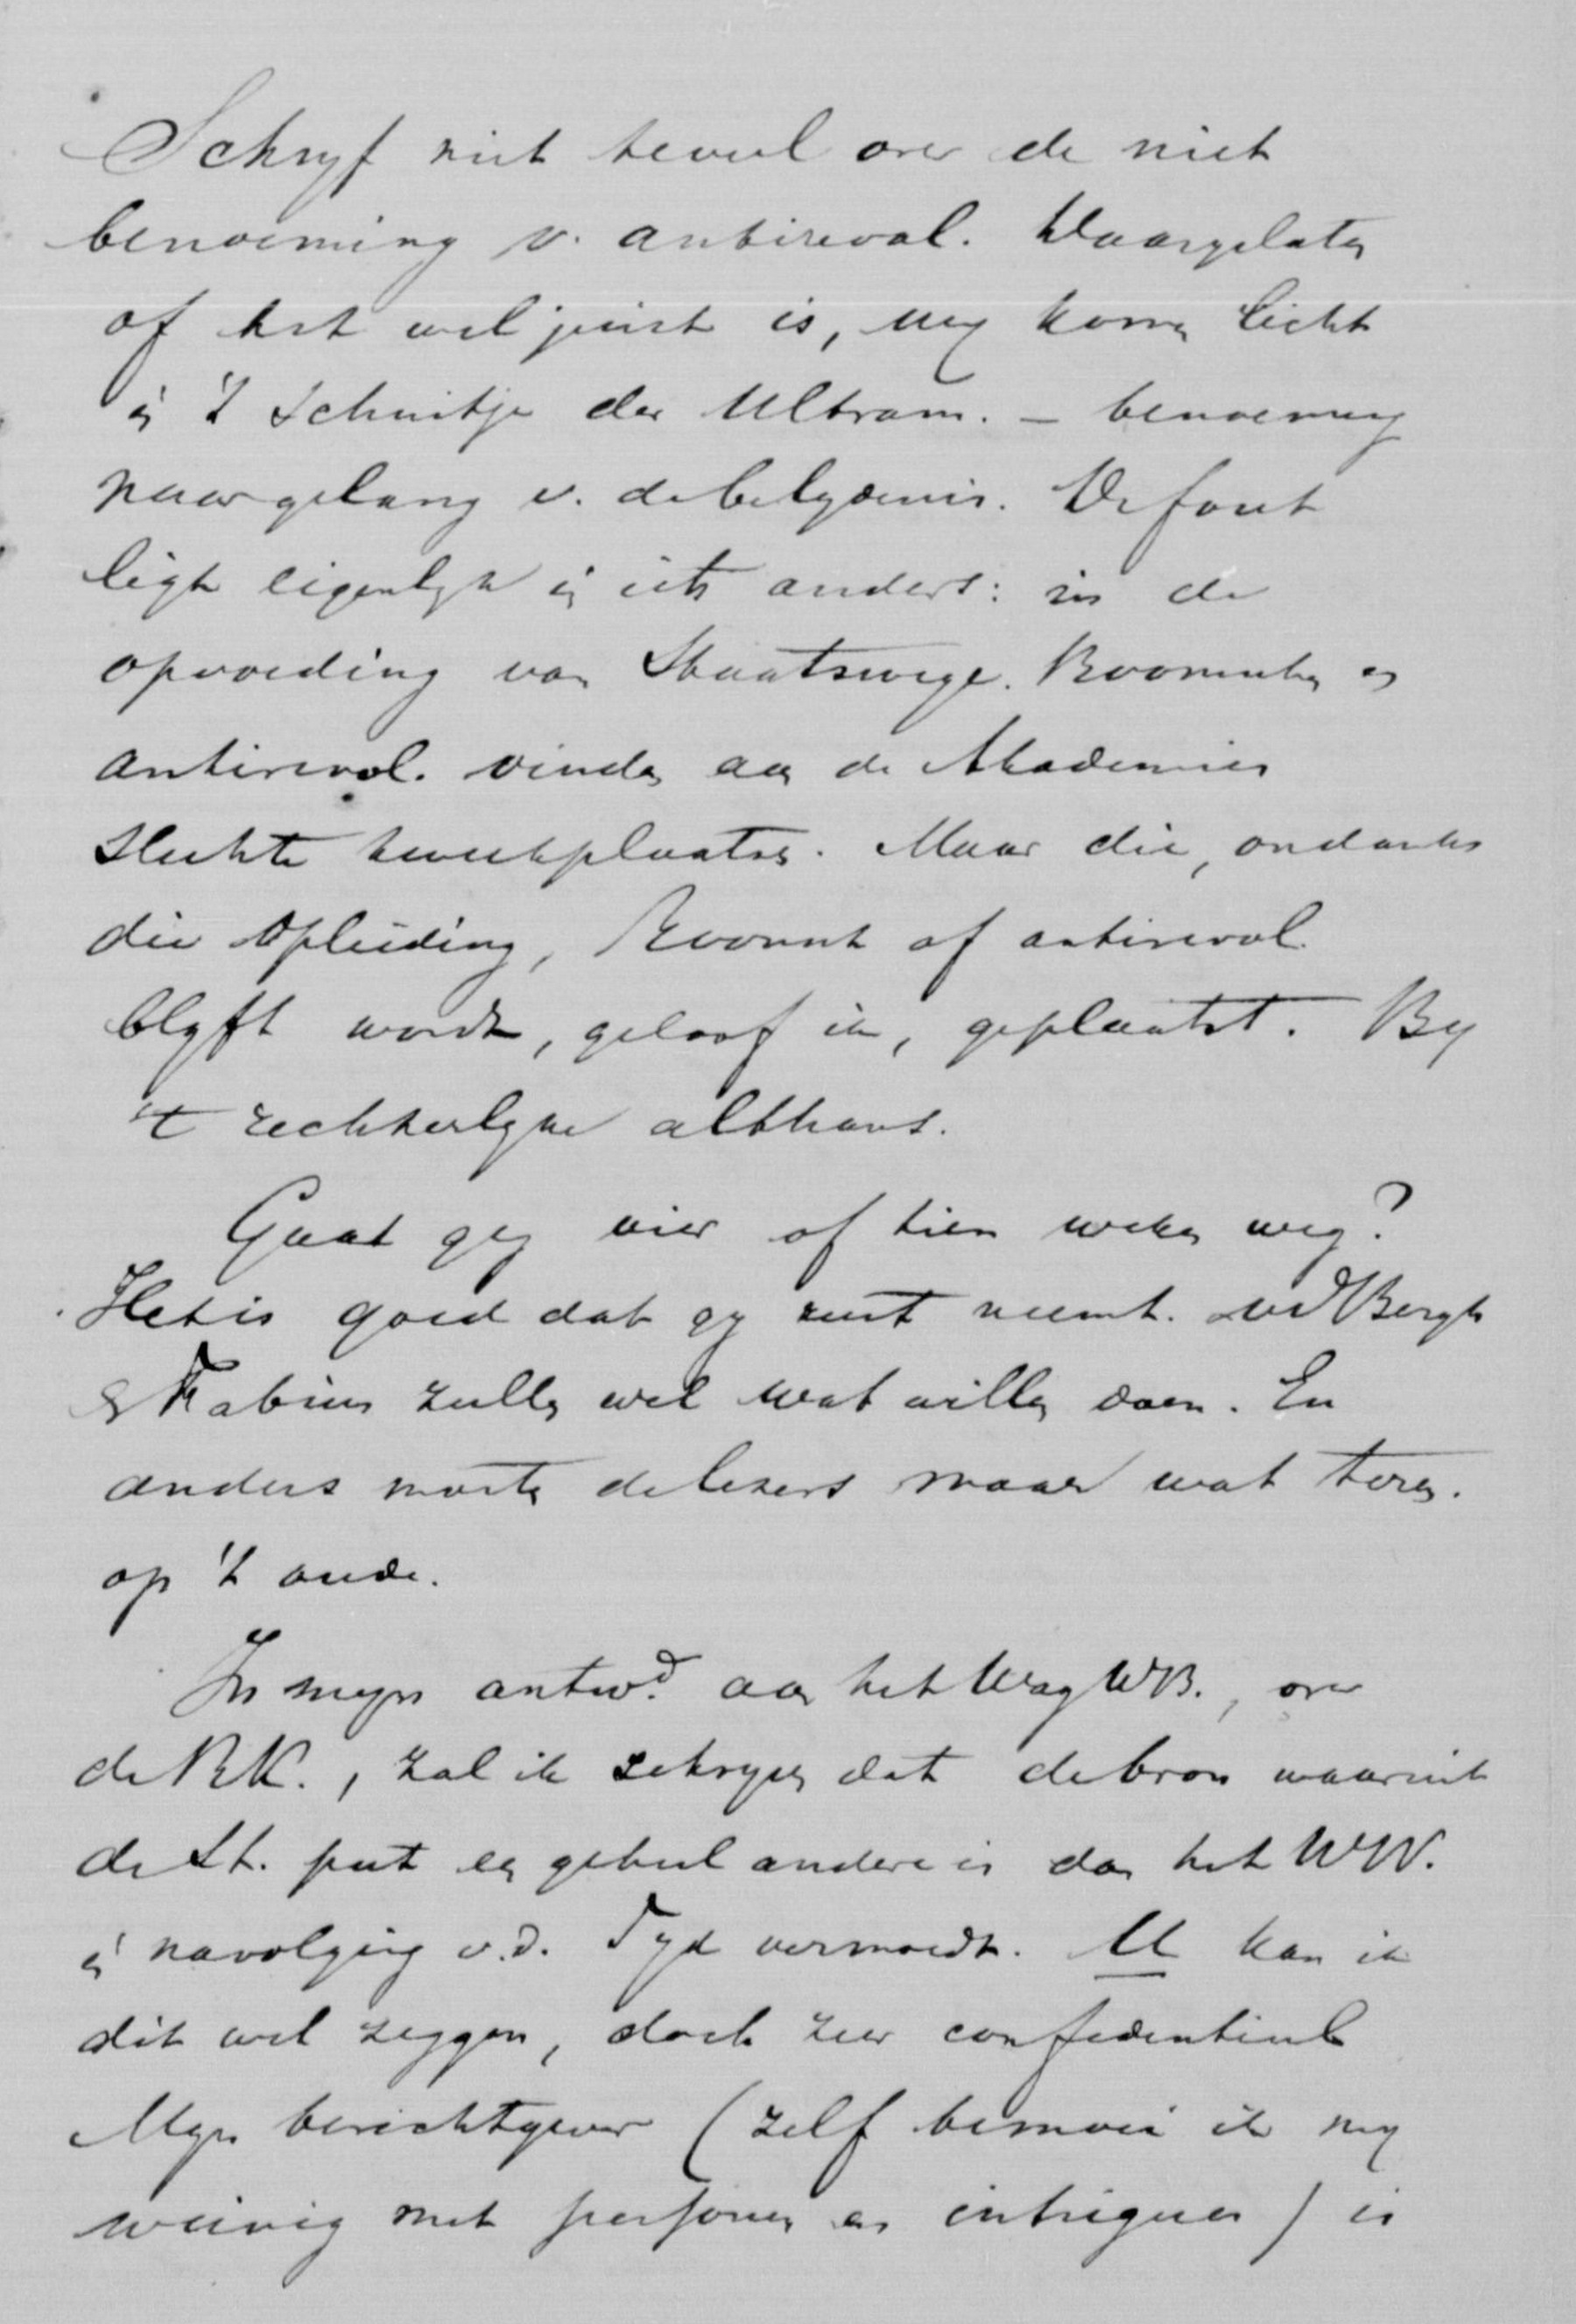 Schryf niet teveel over de niet
benoeming v. antirevol. Daargelaten
of het wel juist is, wy komen licht
in 't schuitje der Ultram. – benoeming
naar gelang v. de belydenis. De fout
ligt eigenlyk in iets anders: in de
opvoeding van Staatswege. Roomschen en
antirevol. vinden aan de Akademies
slechte kweekplaatsen. Maar die, ondanks
die opleiding, Roomsch of antirevol.
blyft wordt, geloof ik, geplaatst. By
't rechterlyke althans.
Gaat gy vier of tien weken weg?
Het is goed dat gy rust neemt. vd Bergh
& Fabius zullen wel wat willen doen. En
anders moeten de lezers maar wat teren
op 't oude.
In myn antwd. aan het Wag WB., over
de RK., zal ik schryven dat de bron waaruit
de St. put een geheel andere is dan het WW.
in navolging v.d. Tyd vermoedt. U kan ik
dit wel zeggen, doch zeer confidentieel
Myn berichtgever (zelf bemoei ik my
weinig met personen en intrigues) is